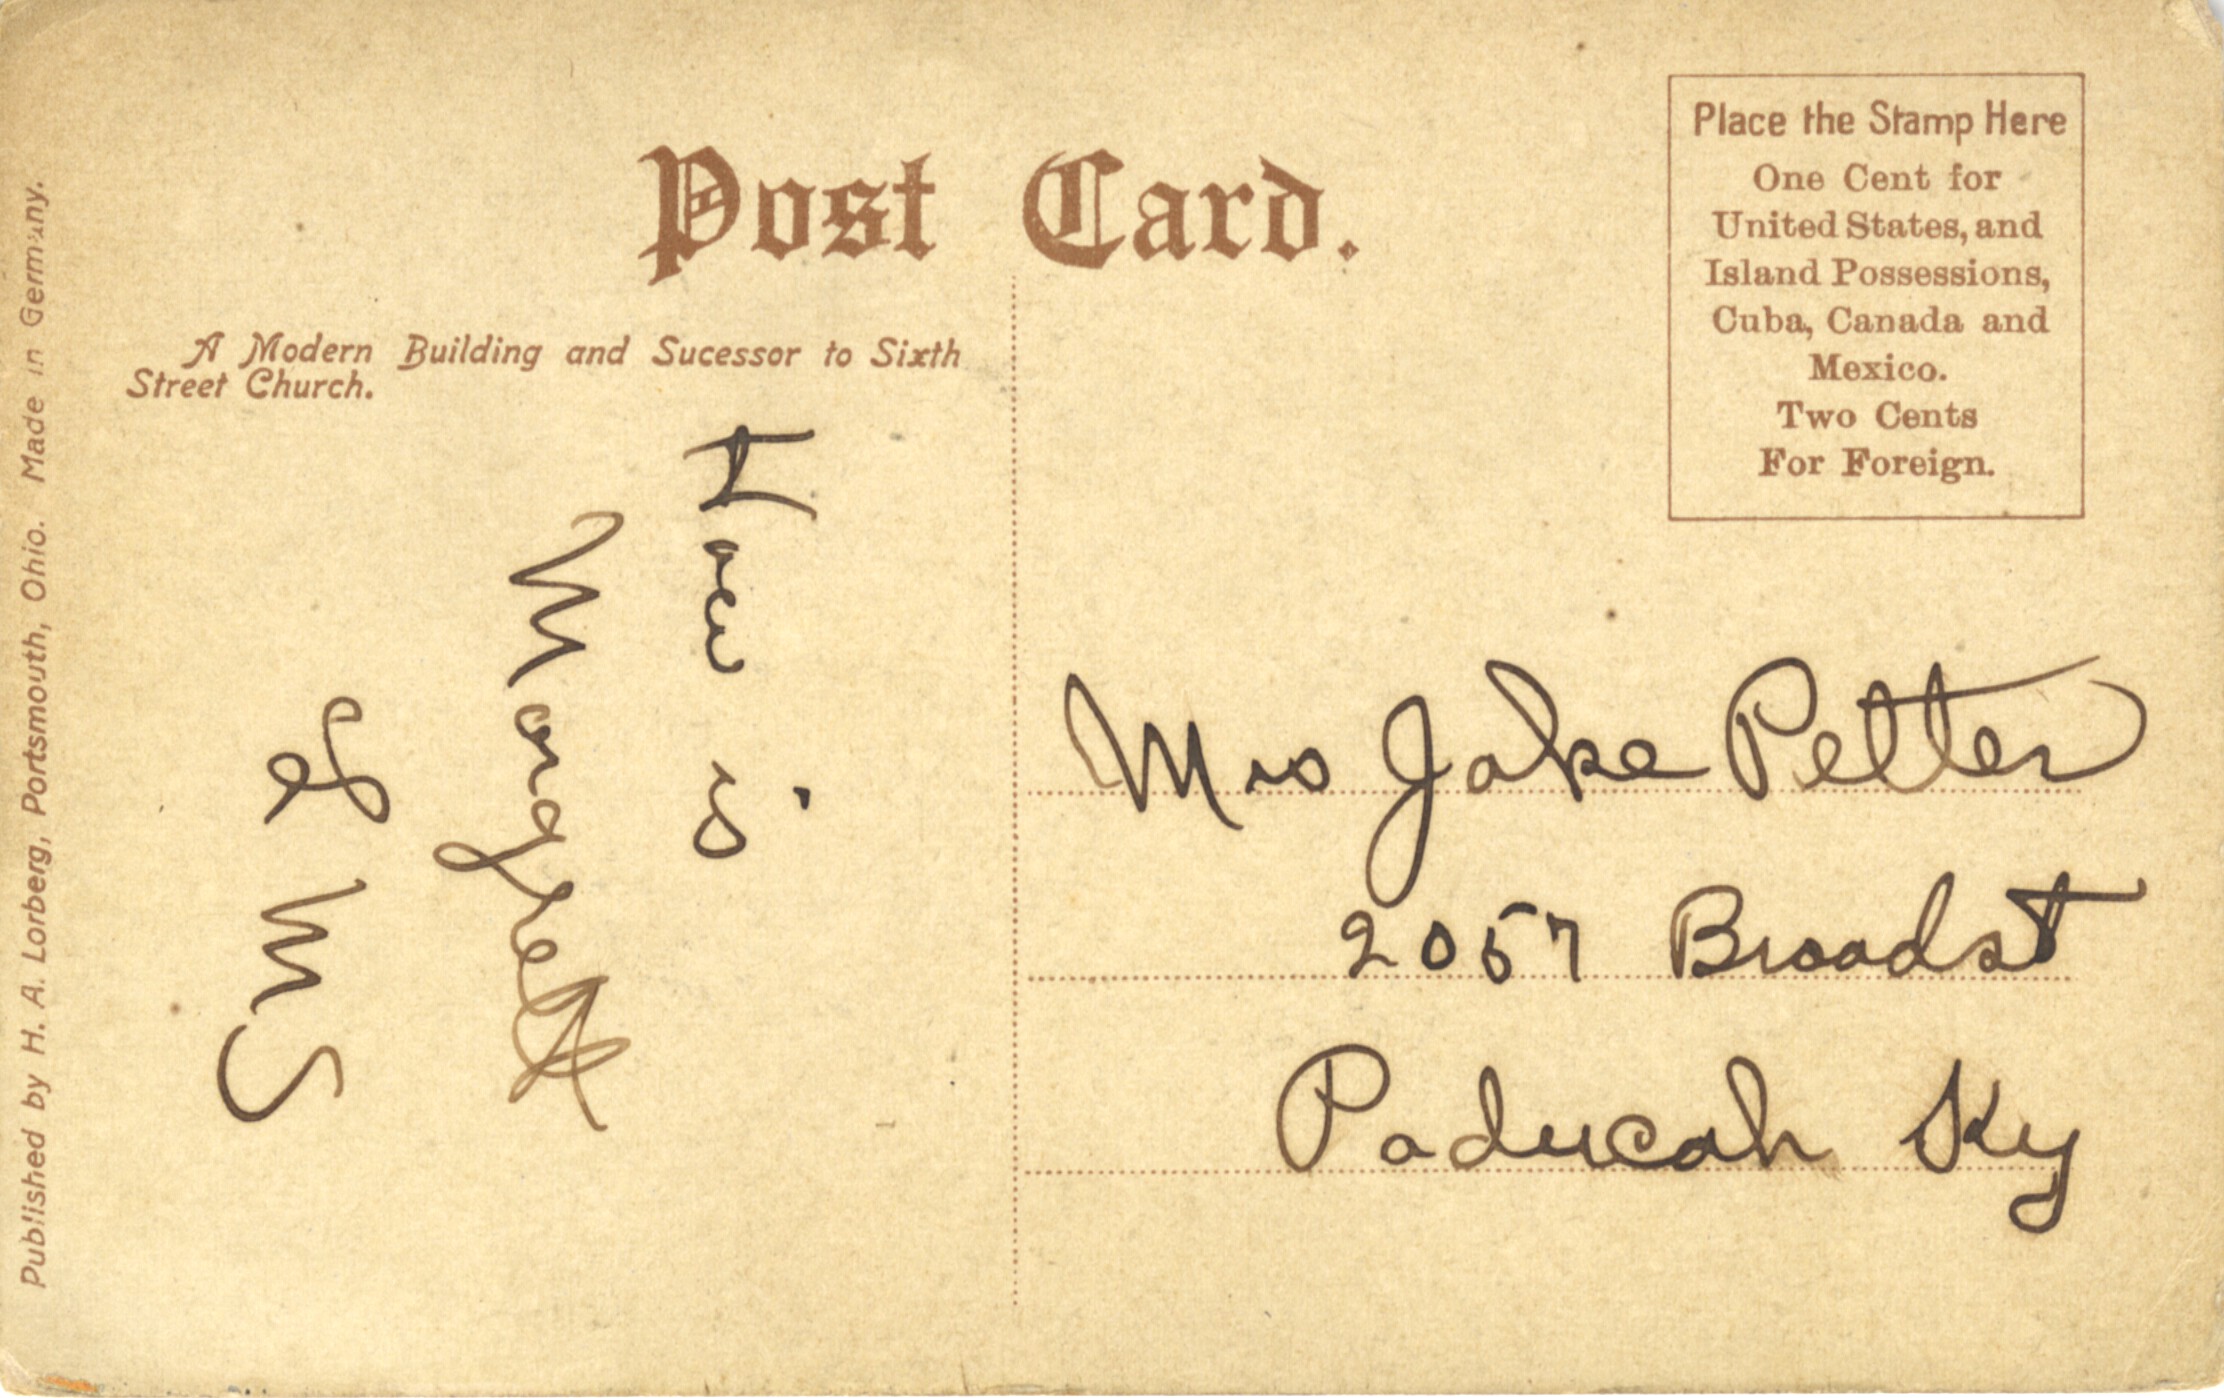 Post Card.
Place the Stamp Here
One Cent for
United States, and
Island Possessions,
Cuba, Canada and
Mexico.
Two Cents
For Foreign.
A Modern Building and Sucessor to Sixth
Street Church.
How is
Margrett
& MS
Mrs Jake Petter
2057 Broadst
Paducah Ky
Published by H. A. Lorberg, Portsmouth, Ohio. Made in Germany.